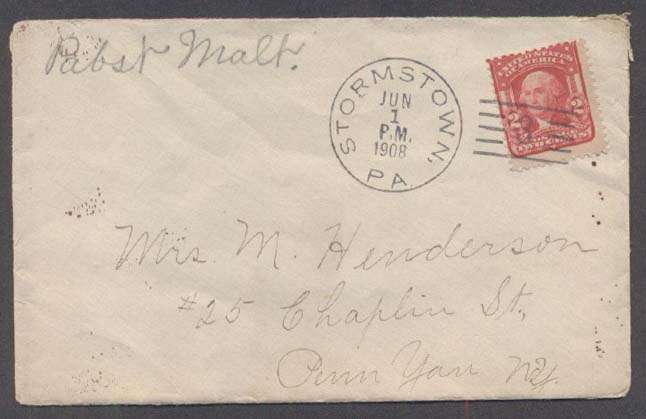 Pabst Malt.
STORMSTOWN, PA.
JUN
1
P.M.
1908
UNITED STATES
OF AMERICA
2 2
TWO CENTS
Mrs. M. Henderson
#25 Chaplin St,
Penn Yan N.Y.